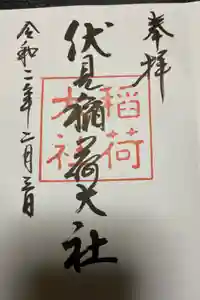 奉拝
伏見稲荷大社
稲荷
大社
令和二年 二月三日